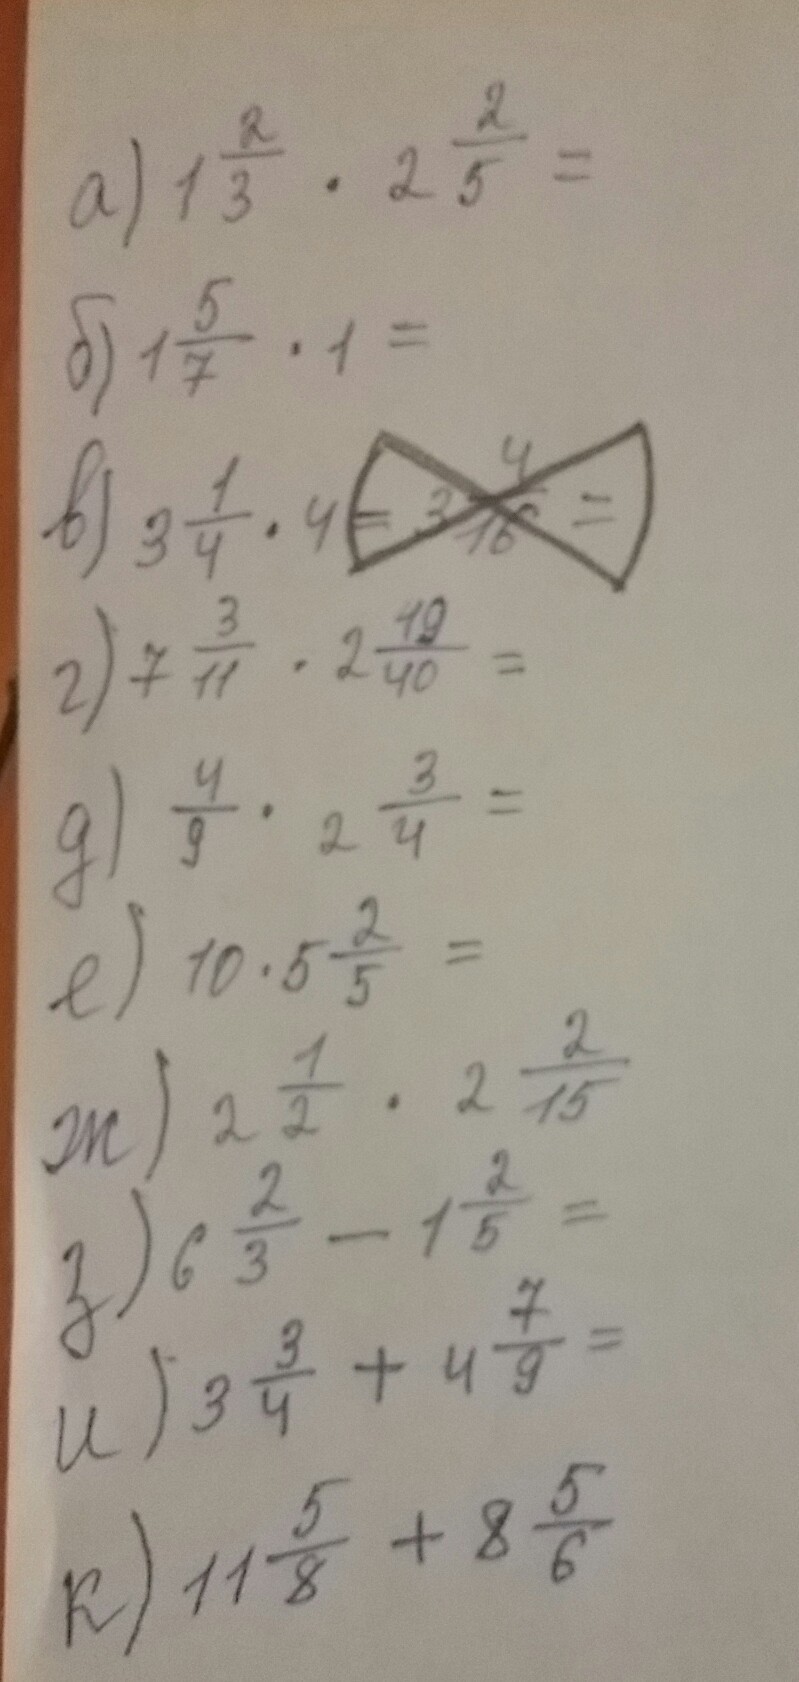 а) 1 2/3 · 2 2/5 =
б) 1 5/7 · 1 =
в) 3 1/4 · 4 = 3 4/16 =
г) 7 3/11 · 2 19/40 =
д) 4/9 · 2 3/4 =
е) 10 · 5 2/5 =
ж) 2 1/2 · 2 2/15
з) 6 2/3 − 1 2/5 =
и) 3 3/4 + 4 7/9 =
к) 11 5/8 + 8 5/6